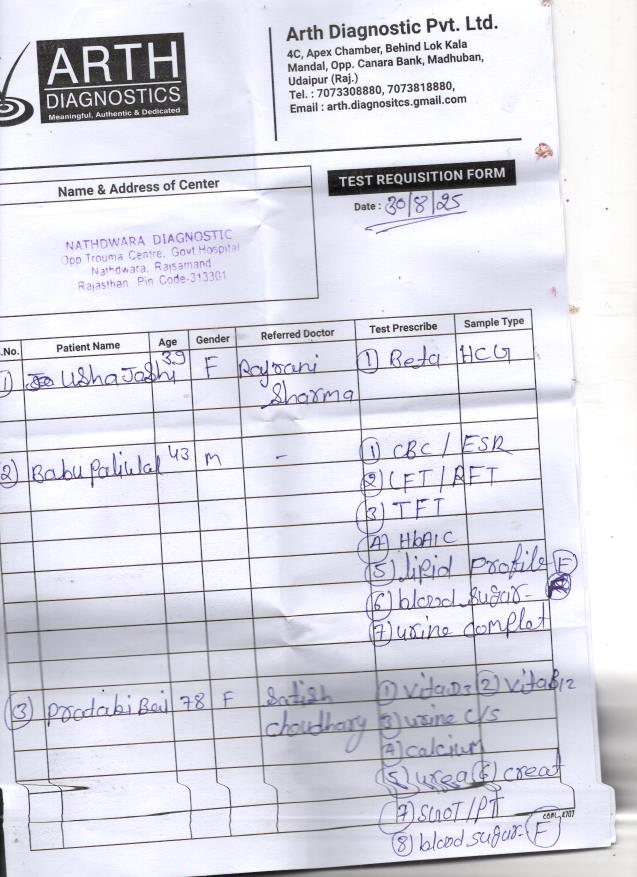 ARTH
DIAGNOSTICS
Meaningful, Authentic & Dedicated
Arth Diagnostic Pvt. Ltd.
4C, Apex Chamber, Behind Lok Kala
Mandal, Opp. Canara Bank, Madhuban,
Udaipur (Raj.)
Tel. : 7073308880, 7073818880,
Email : arth.diagnositcs.gmail.com
Name & Address of Center
NATHDWARA DIAGNOSTIC
Opp Trouma Centre, Govt Hospital
Nathdwara, Rajsamand
Rajasthan Pin Code-313301
TEST REQUISITION FORM
Date : 30/8/25
.No. Patient Name Age Gender Referred Doctor Test Prescribe Sample Type
1) Usha Joshi 39 F Rajrani Sharma ① Beta HCG
2) Babu Paliwal 43 M - ① CBC / ESR
② LFT / RFT
③ TFT
④ HbA1C
⑤ lipid profile F
⑥ blood sugar-
⑦ urine complet
③ Pratabi Bai 78 F Satish Choudhary ① Vita D3 ② Vita B12
③ urine c/s
④ calcium
⑤ urea ⑥ creat
⑦ SGOT/PT
⑧ blood sugar- F